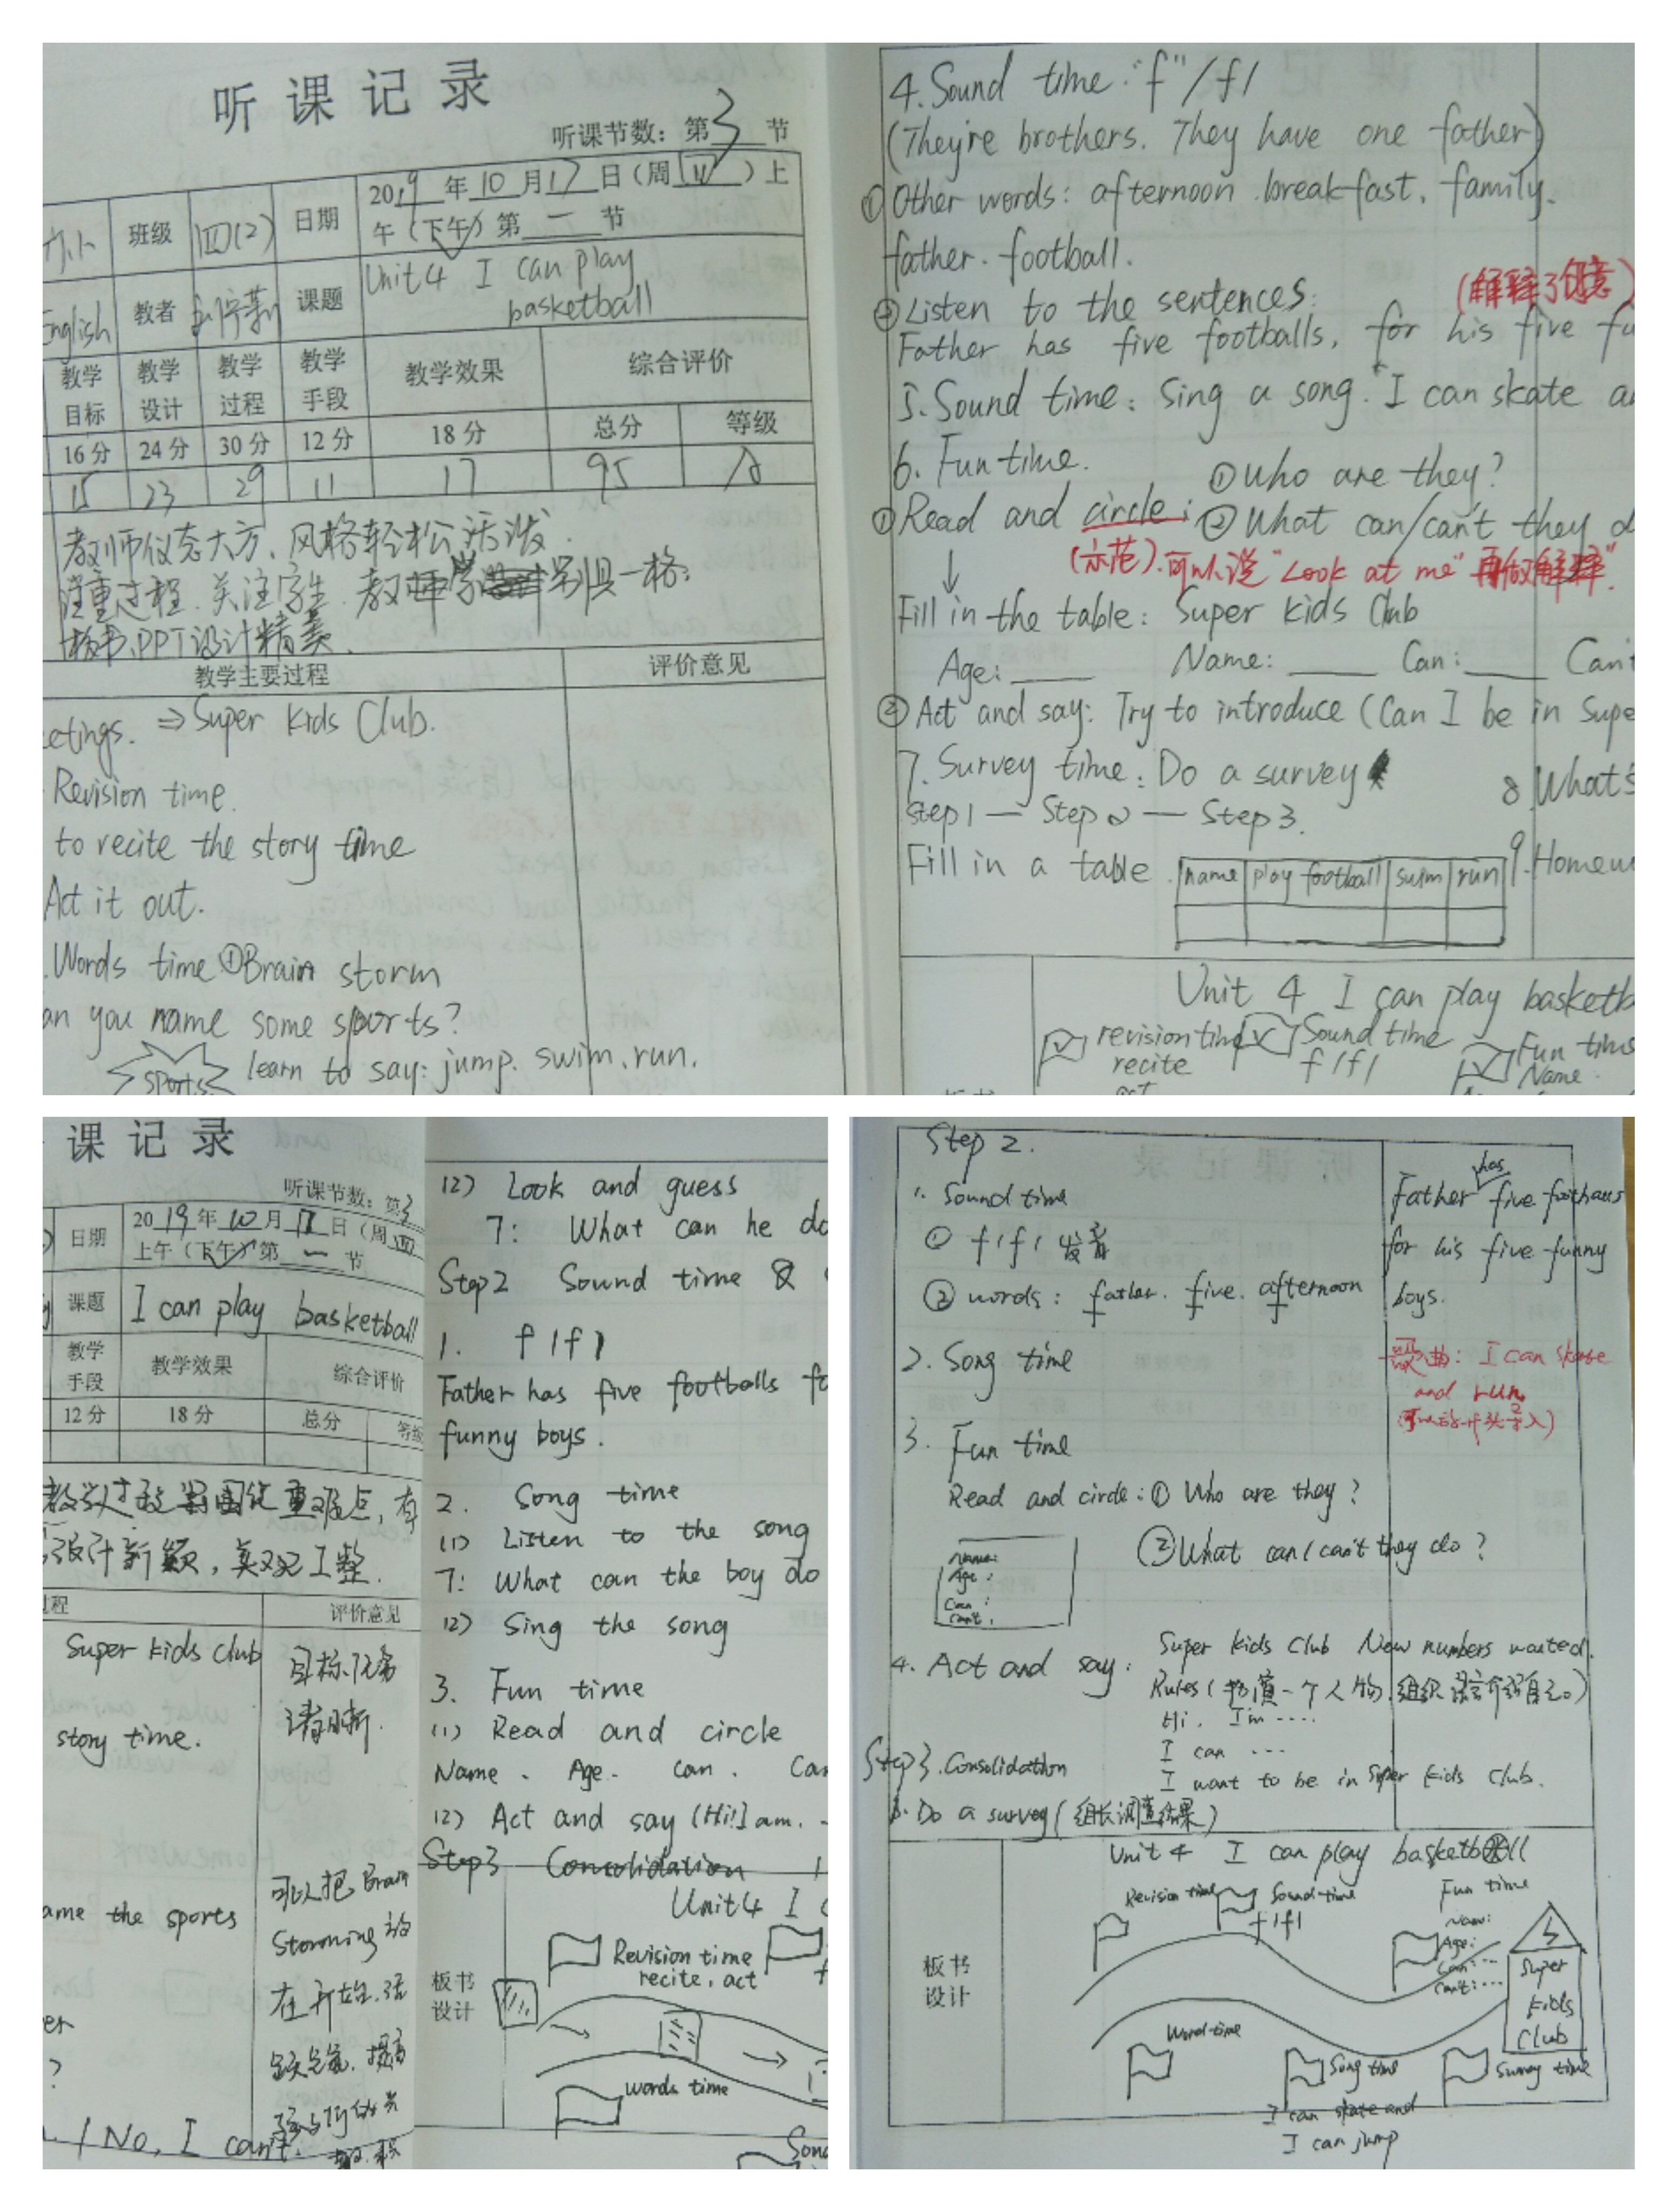 听课记录
听课节数：第3节
班级 四(2) 日期 2019年10月17日（周四）上
午（下午）第一节
English 教者 课题 Unit 4 I can play
basketball
教学 教学 教学 教学 教学效果 综合评价
目标 设计 过程 手段
16分 24分 30分 12分 18分 总分 等级
15 23 29 11 17 95 A
教师仪态大方、风格轻松活泼.
注重过程.关注学生.教学别具一格;
板书.PPT设计精美.
教学主要过程 评价意见
etings. ⇒Super Kids Club.
Revision time.
to recite the story time
Act it out.
.Words time ①Brain storm
an you name some sports?
sports learn to say: jump. swim. run.
4. Sound time: "f" /f/
(They're brothers. They have one father)
①Other words: afternoon. breakfast. family.
father. football.
②Listen to the sentences: (解释了句意)
Father has five footballs, for his five fu
5. Sound time: Sing a song. "I can skate a
6. Fun time. ①Who are they?
①Read and circle: ②What can/can't they d
(示范).可以说"Look at me"再做解释"
↓
Fill in the table: Super Kids Club
Age:____ Name:____ Can:____ Can't
②Act and say: Try to introduce (Can I be in Supe
7. Survey time: Do a survey 8. What's
Step1 — Step2 — Step3.
Fill in a table. name play football swim run 9. Homew
Unit 4 I can play basketb
revision time Sound time Fun time
recite f /f/ Name
课记录
听课节数：第3
日期 2019年10月17日（周四
上午（下午）第一节
课题 I can play basketball
教学 教学效果 综合评价
手段
12分 18分 总分 等级
教学过程紧围绕重难点，有
设计新颖，美观工整.
过程 评价意见
Super Kids Club 目标任务
清晰.
story time.
ame the sports 可以把Brain
Storming放
在开始.活
跃气氛.提高
er
?
/ No, I can't.
(2) Look and guess
T: What can he do
Step2 Sound time &
1. f /f/
Father has five footballs fo
funny boys.
2. Song time
(1) Listen to the song
T: What can the boy do
(2) Sing the song
3. Fun time
(1) Read and circle
Name. Age. can. Can
(2) Act and say (Hi! I am.
Step3 Consolidation
板书
设计
Unit4 I c
Revision time
recite, act
words time
Song
Step 2.
1. Sound time
① f /f/ 发音
② words: father. five. afternoon
2. Song time
3. Fun time
Read and circle: ① Who are they?
②What can/can't they do?
Name:
Age:
Can:
Can't:
4. Act and say: Super Kids Club New numbers wanted.
Rules (扮演一个人物.组织语言介绍自己)
Hi. I'm ....
I can ...
I want to be in Super Kids Club.
Step3. Consolidation
1. Do a survey (组长调查结果)
Father has five footballs
for his five funny
boys.
歌曲: I can skate
and run
板书
设计
Unit 4 I can play basketball
Revision time Sound time Fun time
f /f/ Name:
Age:
Can: ...
Can't: ...
Super
Kids
Club
Word time Song time Survey time
I can skate and
I can jump